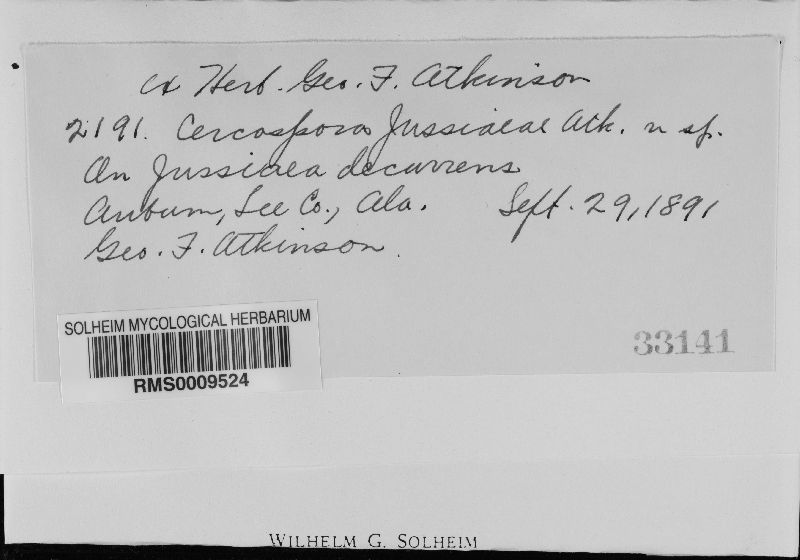 ex Herb. Geo. F. Atkinson
2191. Cercospora Jussiaeae Atk. n sp.
On Jussiaea decurrens
Auburn, Lee Co., Ala. Sept. 29, 1891
Geo. F. Atkinson.
SOLHEIM MYCOLOGICAL HERBARIUM
RMS0009524
33141
WILHELM G. SOLHEIM